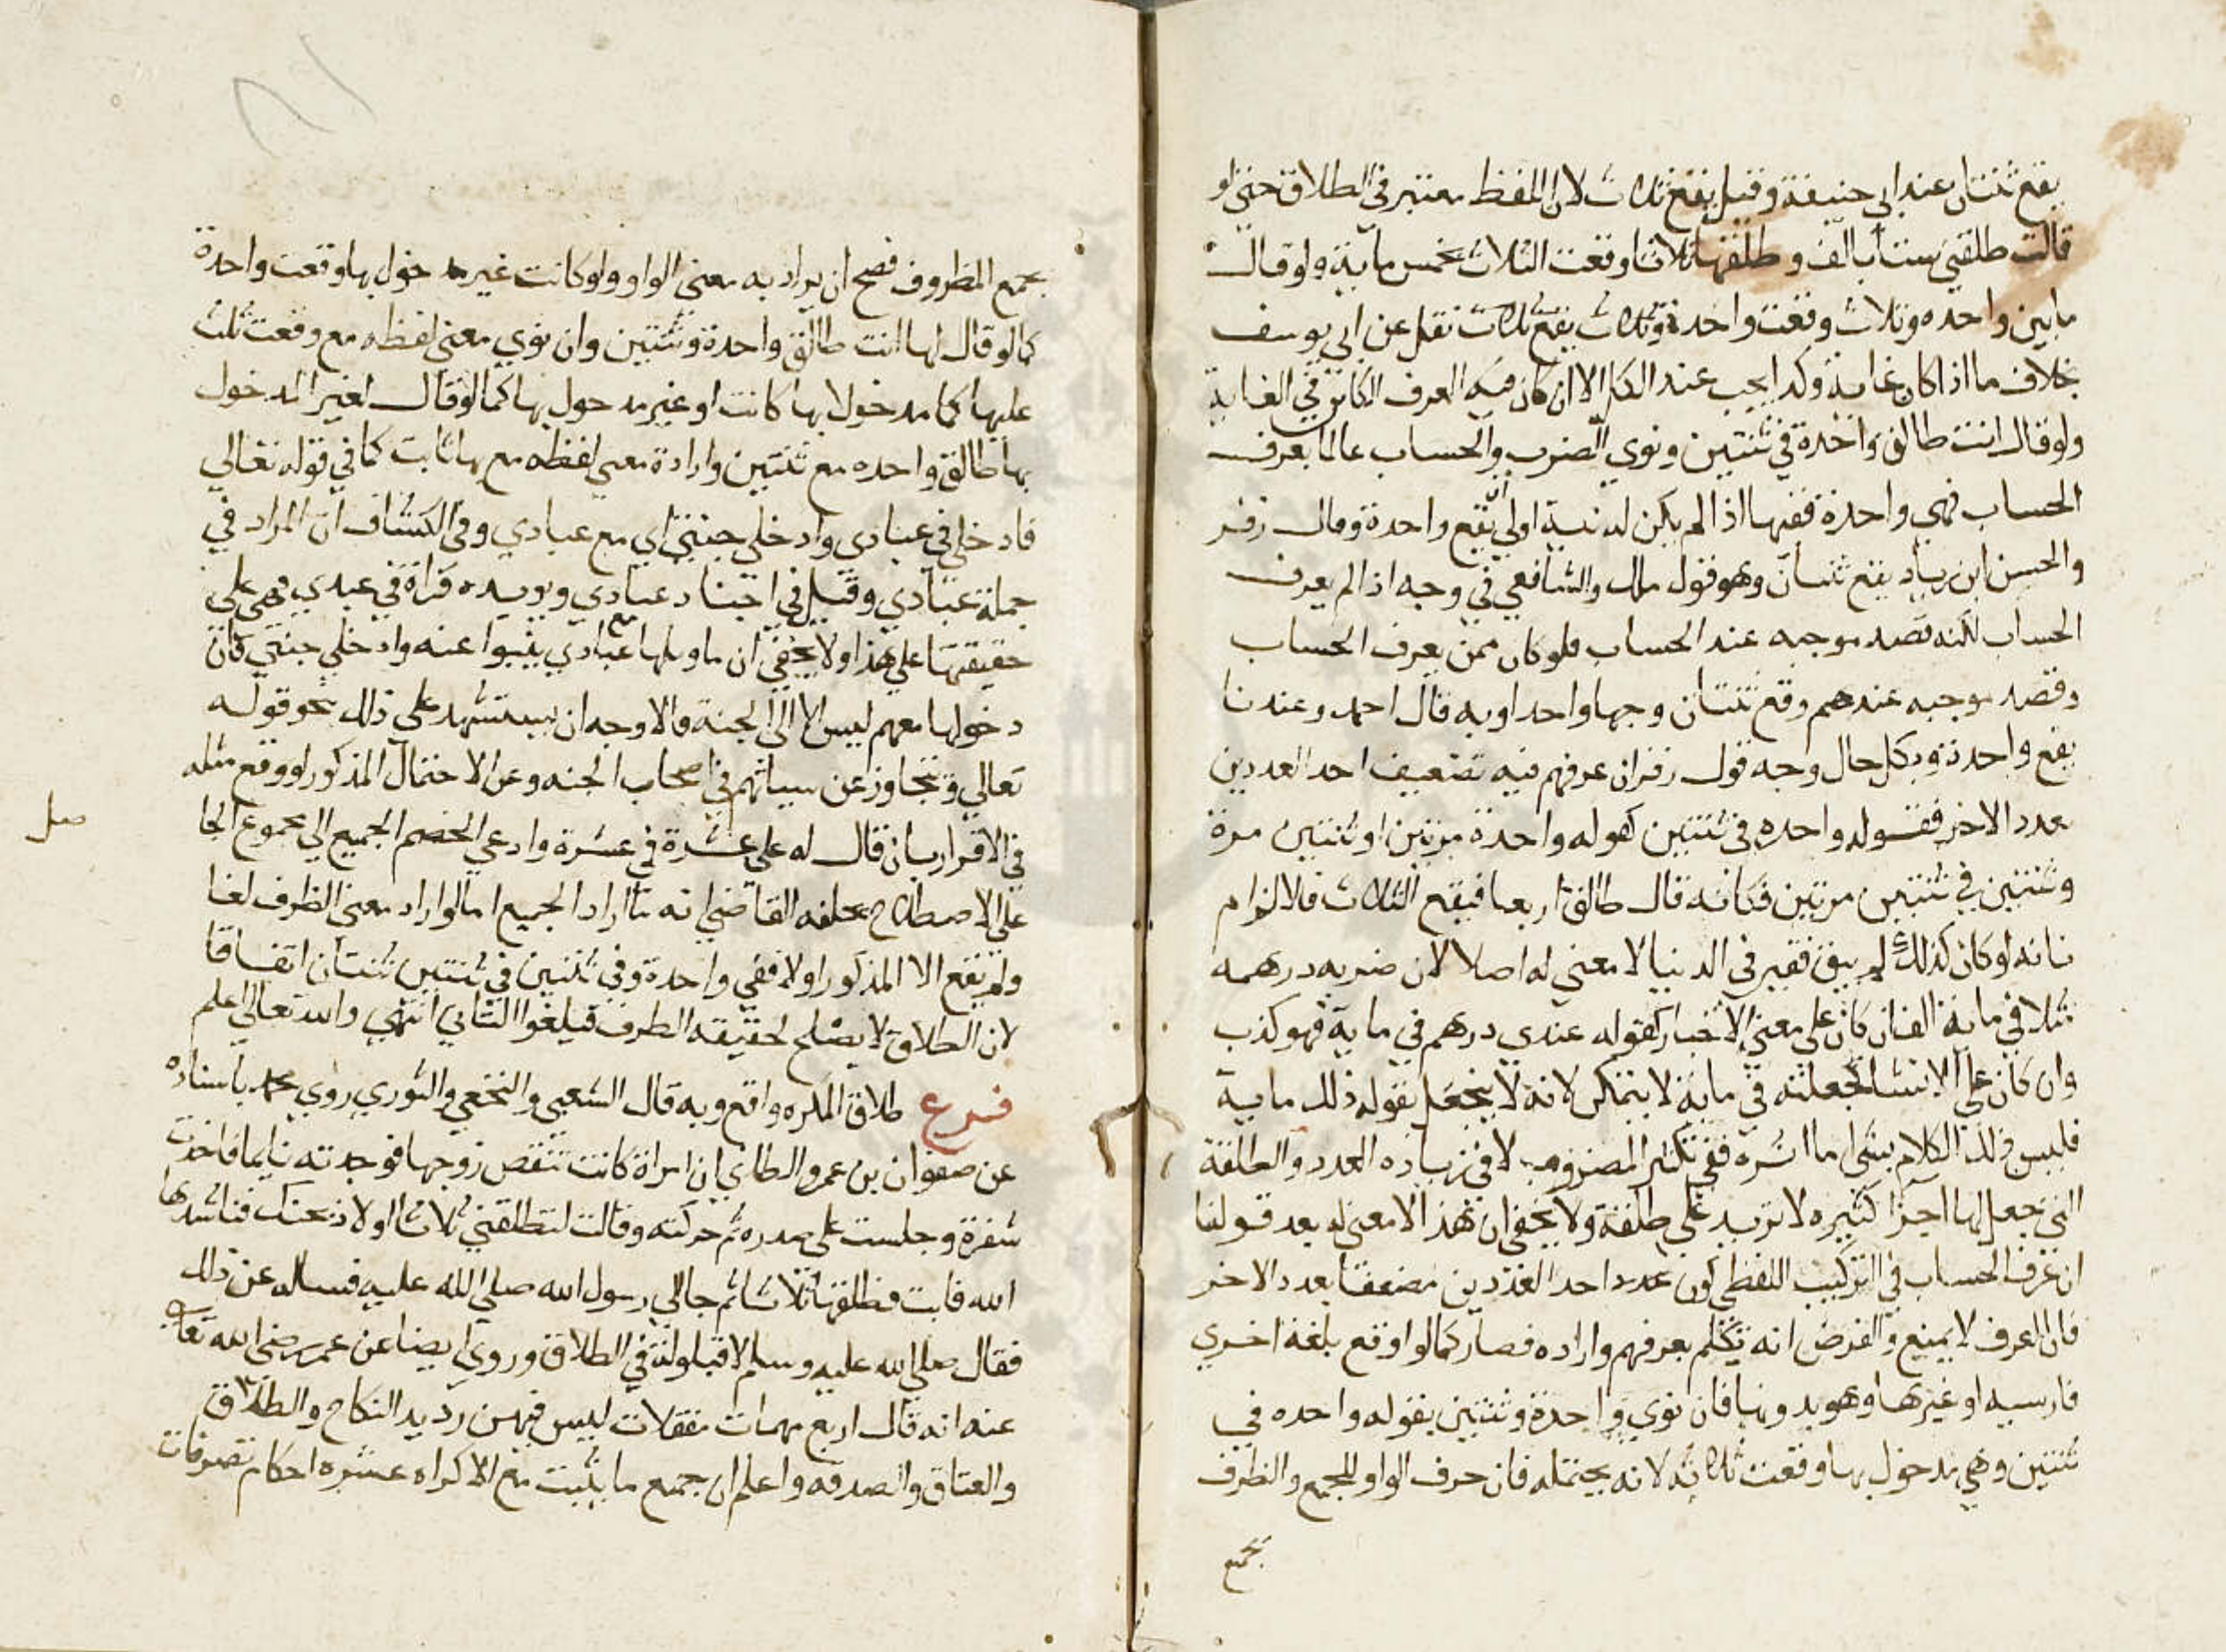 يقع ثنتان عند ابي حنيفة وقيل يقع ثلاث لان اللفظ معتبر في الطلاق حتي لو
قالت طلقني ستا بالف وطلقها ثلاثا وقعت الثلاث بخمس ماية ولو قال
مابين واحده وثلاث وقعت واحدة وثلاث يقع ثلاث نقل عن ابي يوسف
بخلاف ما اذا كان غاية وكد ايجب عند الكل الا ان كان فيه العرف الكاين في الغاية
ولو قال انت طالق واحدة في ثنتين ونوي الضرب والحساب عالما بعرف
الحساب فهي واحدة ففيها اذا لم يكن له نية اولي ان يقع واحدة وقال زفر
والحسن ابن زياد يقع ثنتان وهو قول ملك والشافعي في وجه اذا لم يعرف
الحساب لكنه قصد موجبه عند الحساب فلو كان ممن يعرف الحساب
وقصد موجبه عندهم وقع ثنتان وجها واحدا وبه قال احمد وعندنا
يقع واحدة وبكل حال وجه قول زفر ان عرفهم فيه تضعيف احد العددين
بعدد الاخر فقوله واحده في ثنتين كقوله واحدة مرتين او ثنتين مرة
وثنتين في ثنتين مرتين فكانه قال طالق اربعا فيقع الثلاث فالالزام
بانه لو كان كذلك لم يبق فقير في الدنيا لا معني له اصلا لان ضربه درهمه
مثلا في ماية الف ان كان علي معني الاخبار كقوله عندي درهم في ماية فهو كذب
وان كان علي الانشا كجعلته في ماية لا يمكن لانه لا ينجعل بقوله ذلك ماية
فليس ذلك الكلام بشي اما اثره ففي تكثير المضروب لا في زياده العدد والطلقة
التي جعل لها اجزا كثيره لا تزيد علي طلقة ولا يخفي ان هذا لا معني له بعد قولنا
ان عرف الحساب في التركيب اللفظي كون عدد احد العددين مضعفا بعدد الاخر
فان العرف لا يمنع والفرض انه تكلم بعرفهم واراده فصار كما لو اوقع بلغة اخري
فارسيه او غيرها وهو يدريها فان نوي واحدة وثنتين بقوله واحده في
ثنتين وهي مدخول بها وقعت ثلاثه لانه يحتمله فان حرف الواو للجمع والظرف
يجمع
يجمع المظروف فصح ان يراد به معني الواو ولو كانت غير مدخول بها وقعت واحدة
كما لو قال لها انت طالق واحدة وثنتين وان نوي معني لفظه مع وقعت ثلث
عليها كما مدخولا بها كانت او غير مدخول بها كما لو قال لغير المدخول
بها طالق واحده مع ثنتين وارادة معني لفظه مع بها ثابت كما في قوله تعالي
فادخلي في عبادي وادخلي جنتي اي مع عبادي وفي الكشاف ان المراد في
جملة عبادي وقيل في اجساد عبادي ويويده قراة في عبدي فهي علي
حقيقتها علي هذا ولا يخفي ان تاويلها مع عبادي ينبوا عنه وادخلي جنتي فان
دخولها معهم ليس الا الي الجنة فالاوجه ان يستشهد علي ذلك بنحو قوله
تعالي ونتجاوز عن سيياتهم في اصحاب الجنه وعن الاحتمال المذكور لو وقع مثله
في الاقرار بان قال له علي عشرة في عشرة وادعي الخصم الجميع الي مجموع الحا
صل
علي الاصطلاح يحلفه القاضي انه ما اراد الجميع اما لو اراد معني الظرف لغا
ولم يقع الا المذكور اولا ففي واحدة وفي ثنتين في ثنتين ثنتان اتفاقا
لان الطلاق لا يصلح لحقيقه الظرف فيلغوا الثاني انتهي والله تعالي اعلم
فرع طلاق المكره واقع وبه قال الشعبي والنخعي والثوري روي محمد باسناده
عن صفوان بن عمرو الطاي ان امراة كانت تنقص زوجها فوجدته نايما فاخذت
شفرة وجلست علي صدره ثم حركته وقالت لتطلقني ثلاثا او لاذبحنك فناشدها
الله فابت فطلقها ثلاثا ثم جا الي رسول الله صلي الله عليه فساله عن ذلك
فقال صلي الله عليه وسلم لا قيلولة في الطلاق وروي ايضا عن عمر رضي الله تعالي
عنه انه قال اربع مبهمات مقفلات ليس فيهن رديد النكاح والطلاق
والعتاق والصدقه واعلم ان جميع ما يثبت مع الاكراه عشره احكام تصرفات